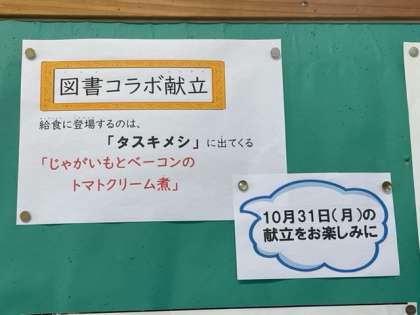 図書コラボ献立
給食に登場するのは、
「タスキメシ」に出てくる
「じゃがいもとベーコンの
トマトクリーム煮」
10月31日(月)の
献立をお楽しみに